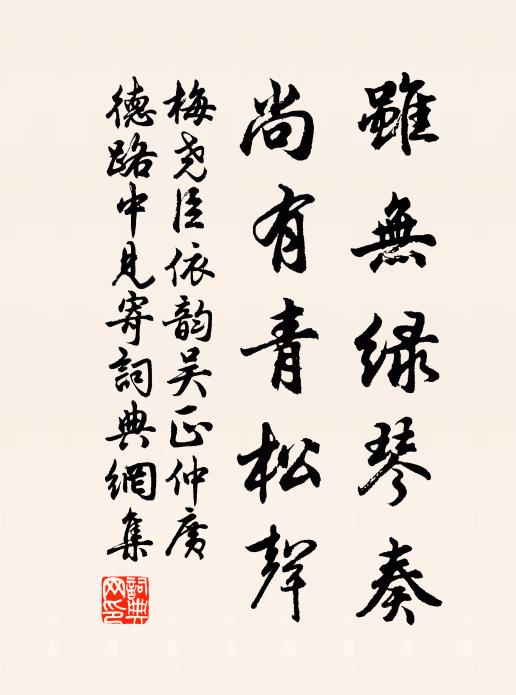 雖無绿琴奏
尚有青松聲
梅尧臣依韵吴正仲廣
德路中見寄詞典網集
詞典网印